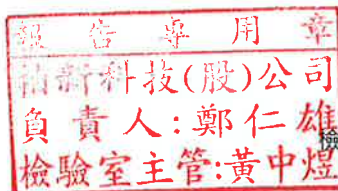 報告專用章
科技(股)公司
負責人:鄭仁雄
檢
檢驗室主管:黃中煜